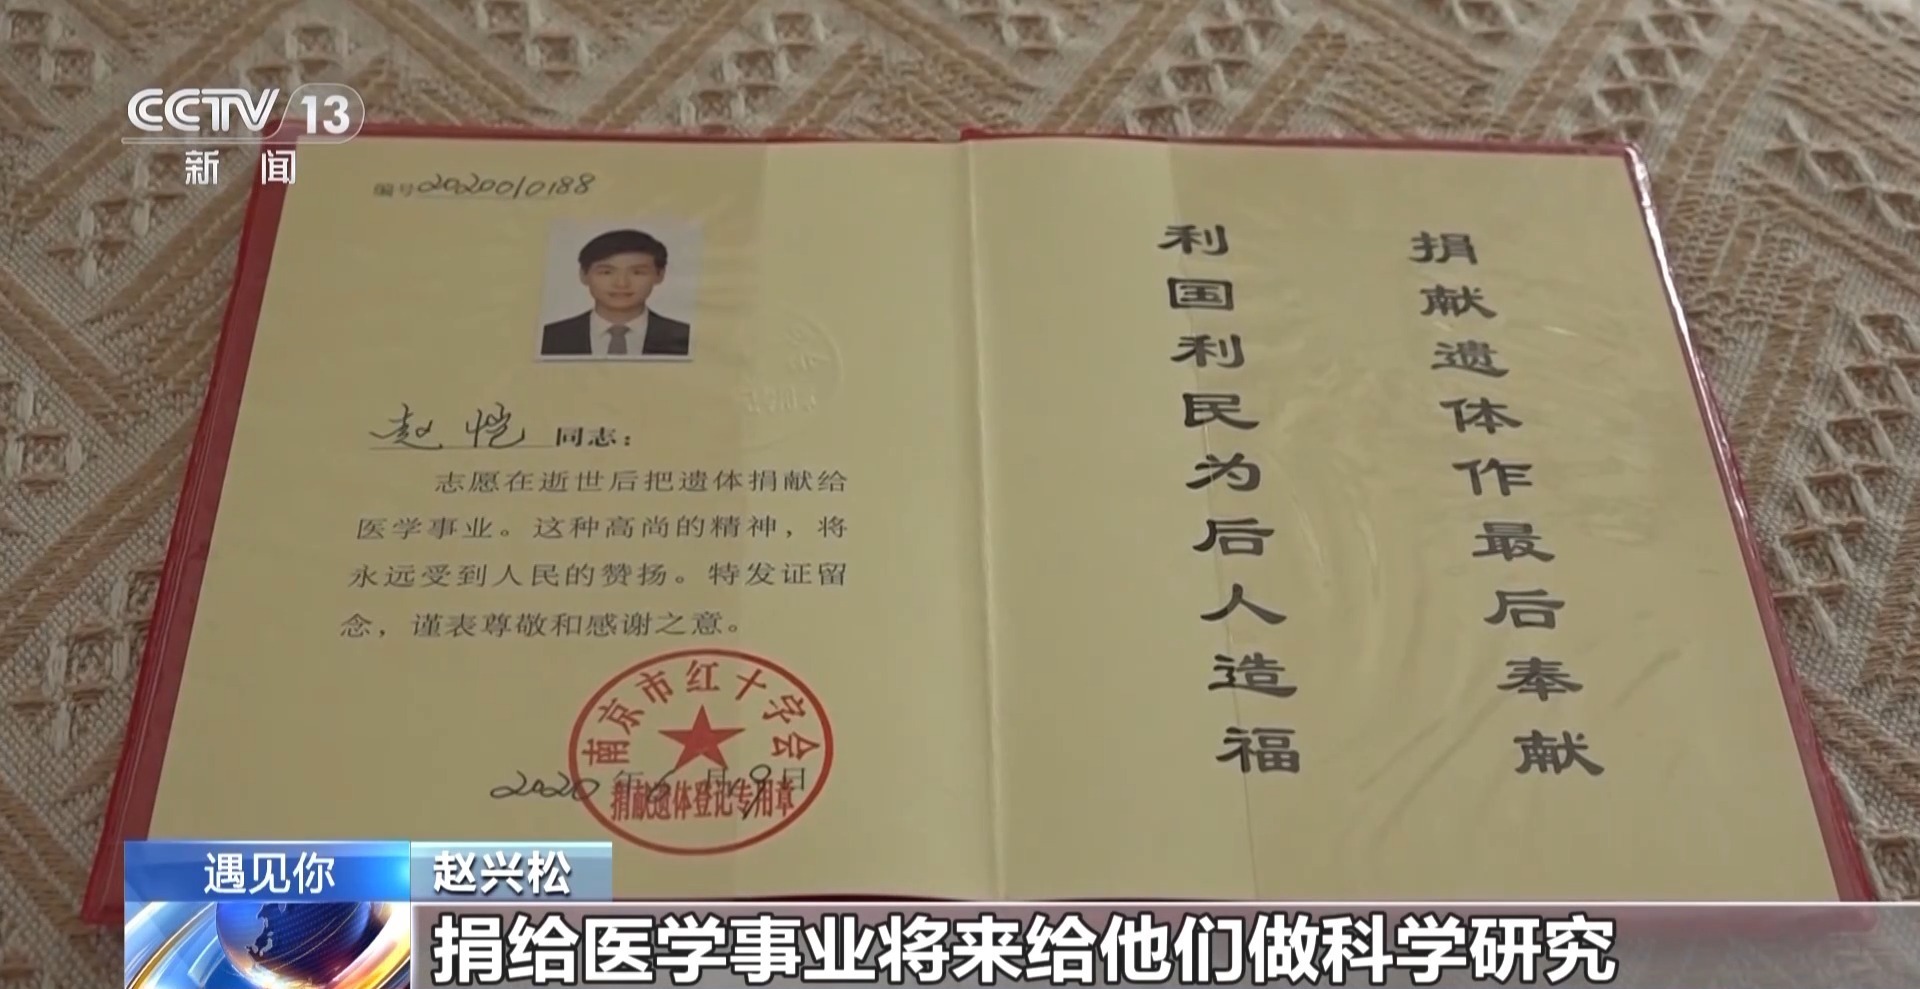 CCTV 13
新闻
编号2020010188
赵恺 同志：
志愿在逝世后把遗体捐献给
医学事业。这种高尚的精神，将
永远受到人民的赞扬。特发证留
念，谨表尊敬和感谢之意。
南京市红十字会
2020年6月19日
捐献遗体登记专用章
捐献遗体作最后奉献
利国利民为后人造福
遇见你
赵兴松
捐给医学事业将来给他们做科学研究